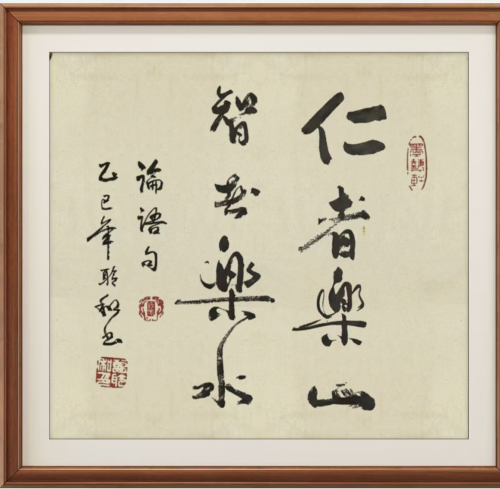 仁者樂山
智者樂水
論語句
乙巳年聆和書